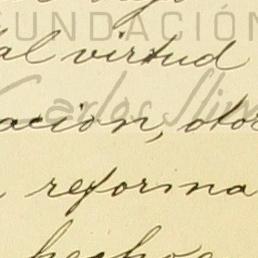 FUNDACIÓN
tal virtud
Carlos Slim
ación, otor
reforma
hechos